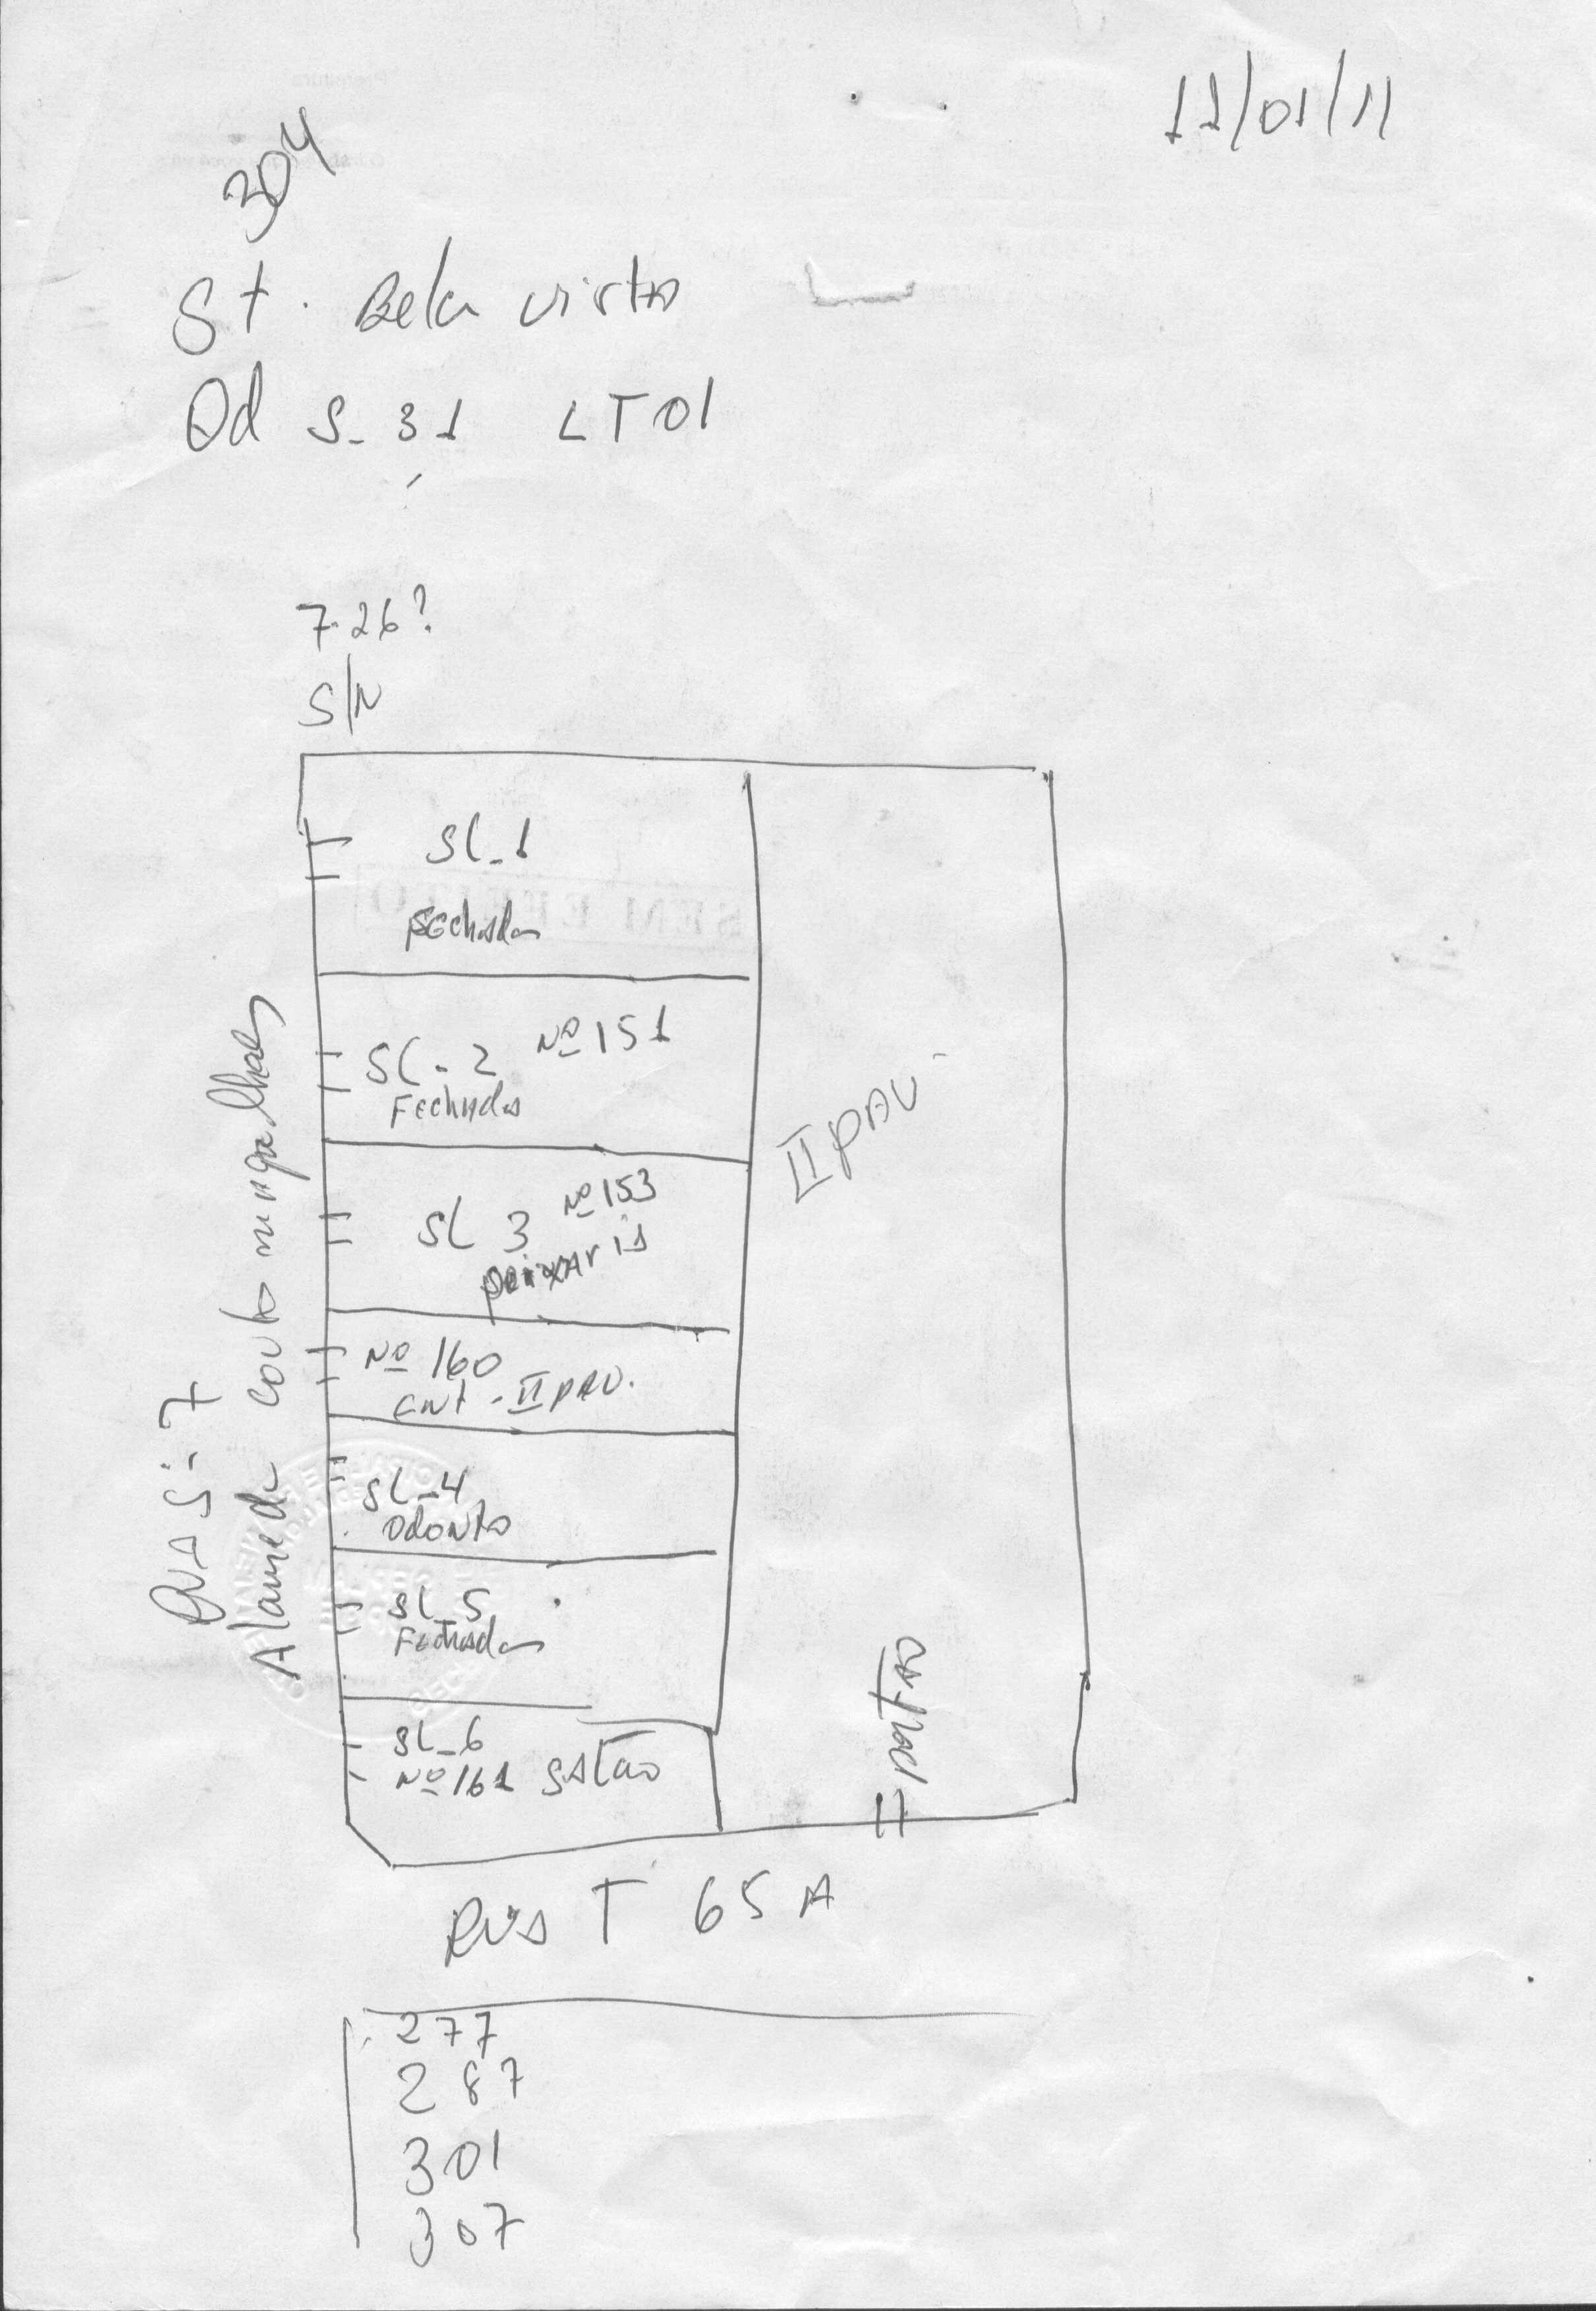 11/01/11
304
St. Bela vista
Qd S-31 LT 01
7-26?
S/N
SL-1
Fechada
SL-2 Nº 151
Fechada
SL 3 Nº 153
peixaria
Nº 160
ENT - II PAV.
SL-4
Odonto
SL-5
Fechada
SL-6
Nº 161 Salão
II PAV.
portão
RUA S-7
Alameda couto magalhaes
RUA T 65 A
277
287
301
307